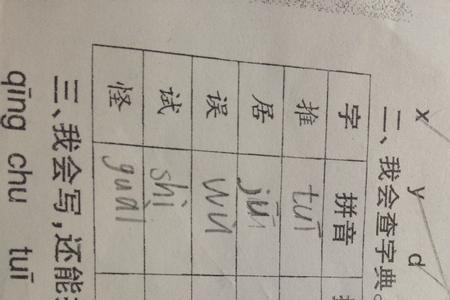 x y d
二、我会查字典。
字 拼音
推 tuī
居 jū
误 wù
试 shì
怪 guài
三、我会写,还能
qīng chu tuī